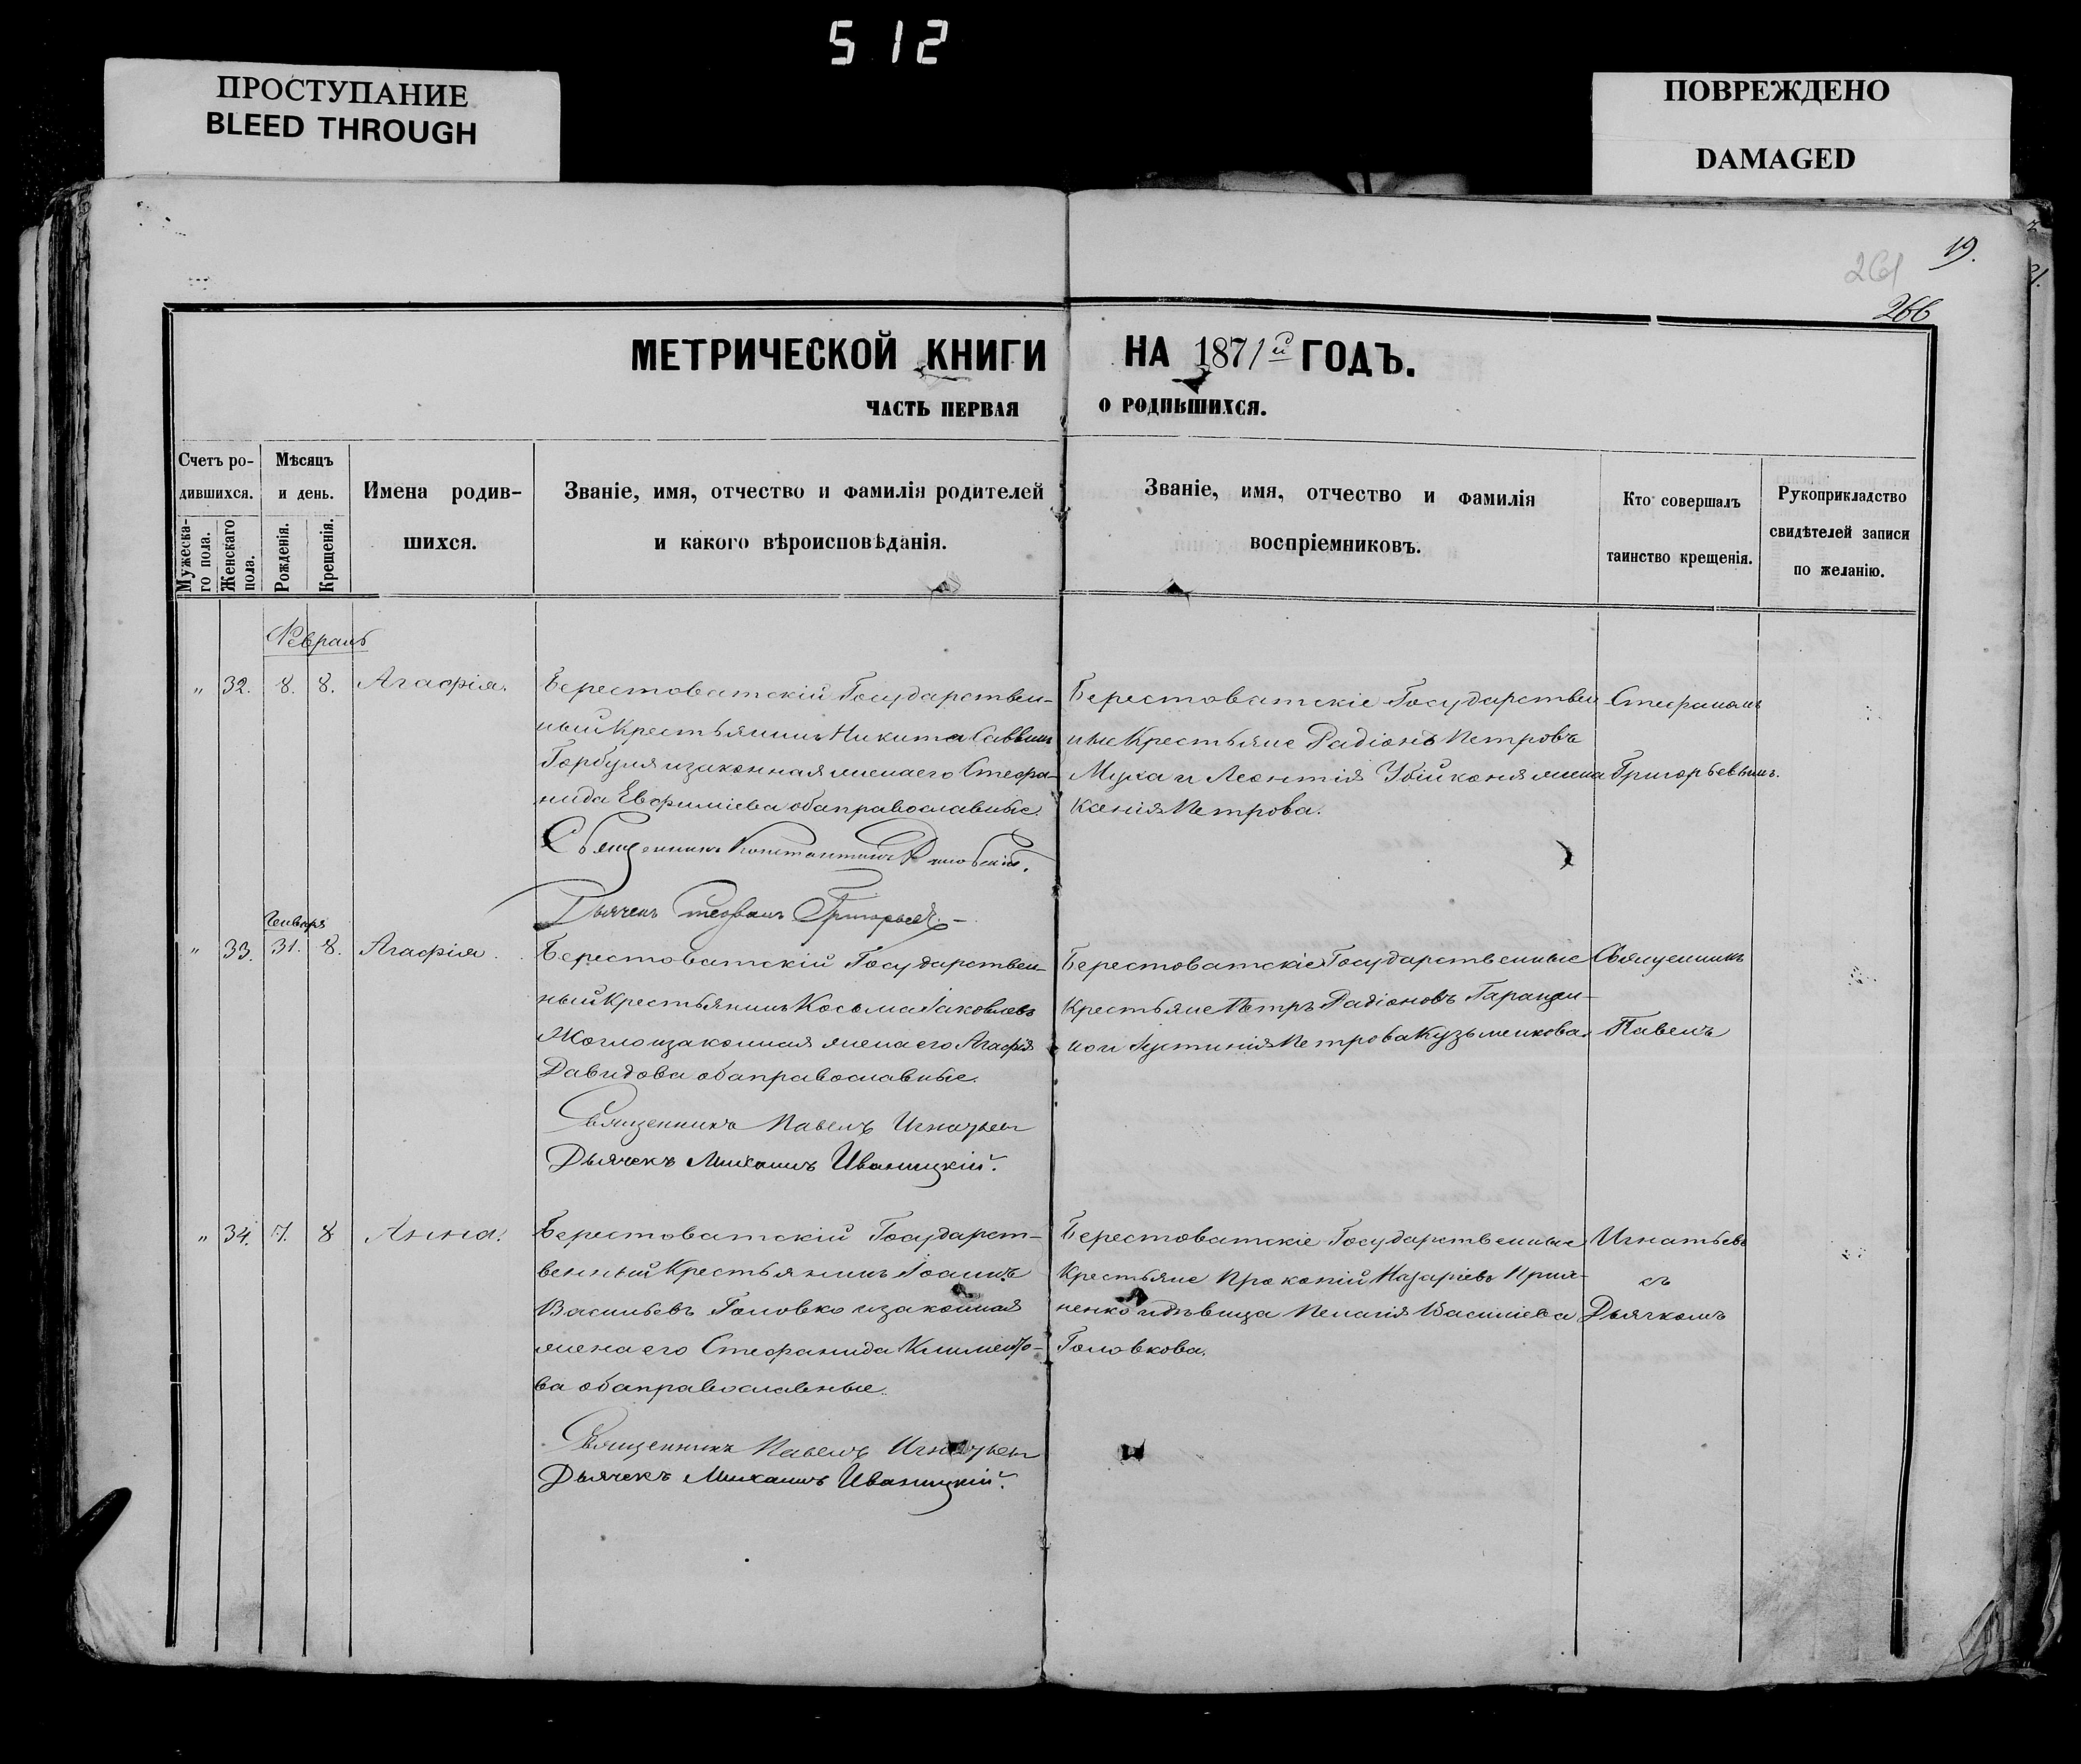 512
ПРОСТУПАНИЕ
BLEED THROUGH
ПОВРЕЖДЕНО
DAMAGED
19.
261
266
МЕТРИЧЕСКОЙ КНИГИ НА 1871й ГОДЪ.
ЧАСТЬ ПЕРВАЯ О РОДИВШИХСЯ.
Счетъ ро-
дившихся.
Мужеска-
го пола.
Женскаго
пола.
Мѣсяцъ
и день.
Рожденія.
Крещенія.
Имена родив-
шихся.
Званіе, имя, отчество и фамилія родителей
и какого вѣроисповѣданія.
Званіе, имя, отчество и фамилія
воспріемниковъ.
Кто совершалъ
таинство крещенія.
Рукоприкладство
свидѣтелей записи
по желанію.
Февраль
„ 32. 8. 8. Агафія.
Берестоватскій Государствен-
ный Крестьянинъ Никита Саввинъ
Горбуля и законная жена его Стефа-
нида Евфиміева оба православные.
Священникъ Константинъ
Дьячекъ Стефанъ Григорьевъ.
Берестоватскіе Государствен
ные Крестьяне Радіонъ Петровъ
Муха и Леонтія Убійконя жена
Ксенія Петрова.
Стефаномъ
Григорьевымъ.
Генваря
„ 33. 31. 8. Агафія.
Берестоватскій Государствен-
ный Крестьянинъ Косьма Іаковлевъ
Жогло и законная жена его Агафія
Давидова оба православные.
Священникъ Павелъ Игнатьев
Дьячекъ Михаилъ Иваницкій.
Берестоватскіе Государственные
Крестьяне Петръ Радіоновъ Гаращен-
ко и Іустинія Петрова Кузьменкова
Священникъ
Павелъ
„ 34. 7. 8 Анна.
Берестоватскій Государст-
венный Крестьянинъ Іоаннъ
Васильевъ Головко и законная
жена его Стефанида Климен͡то-
ва оба православные.
Священникъ Павелъ Игнатьев
Дьячекъ Михаилъ Иваницкій.
Берестоватскіе Государственные
Крестьяне Прокопій Назаріевъ
ненко и дѣвица Пелагія Василіева
Головкова.
Игнатьевъ
съ
Дьячкомъ